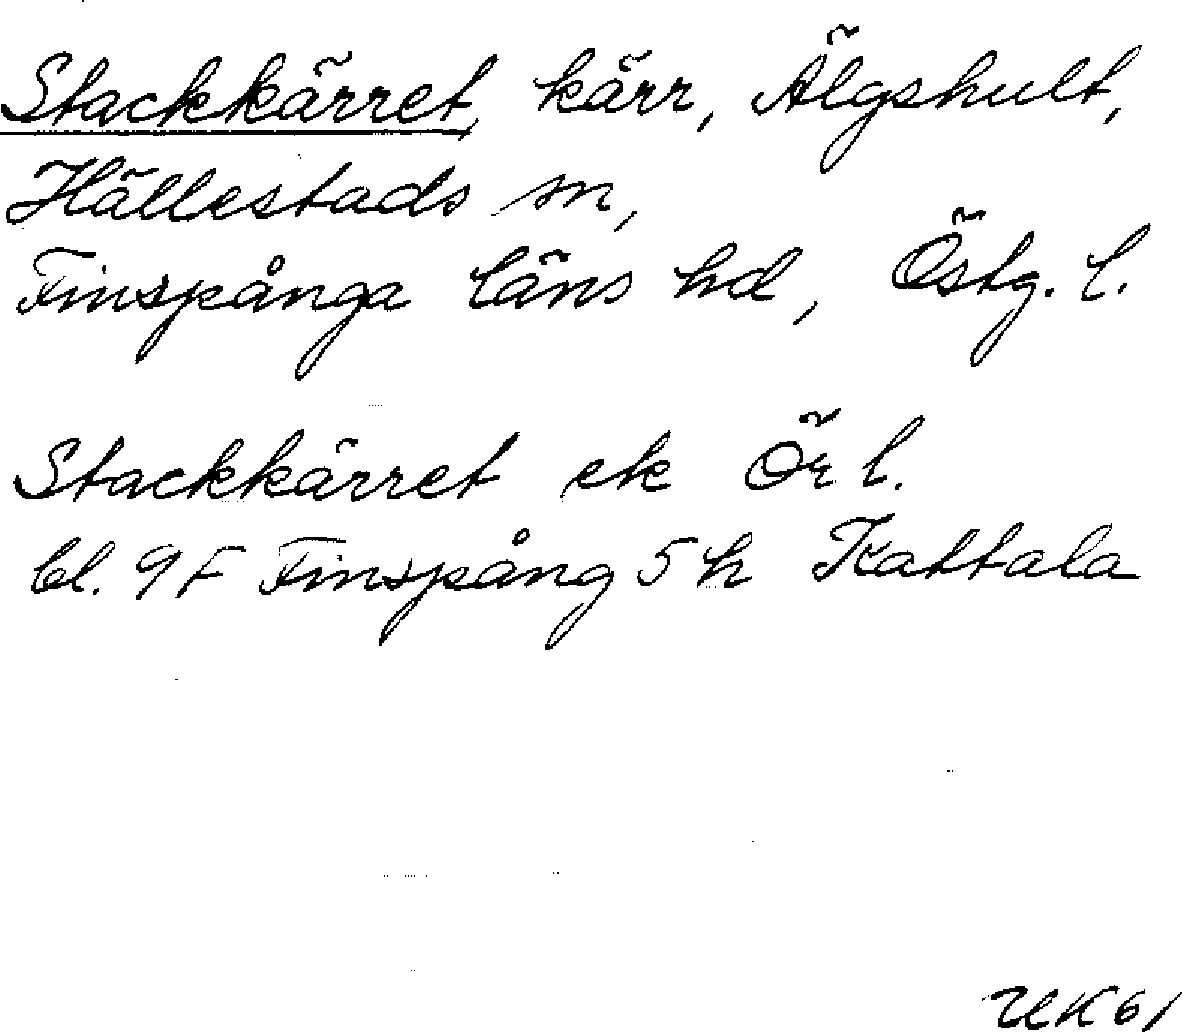 Stackkärret, kärr, Älgshult,
Hällestads sn,
Finspånga läns hd, Östg. l.
Stackkärret ek Ör l.
bl. 9F Finspång 5h Kattala
UK61